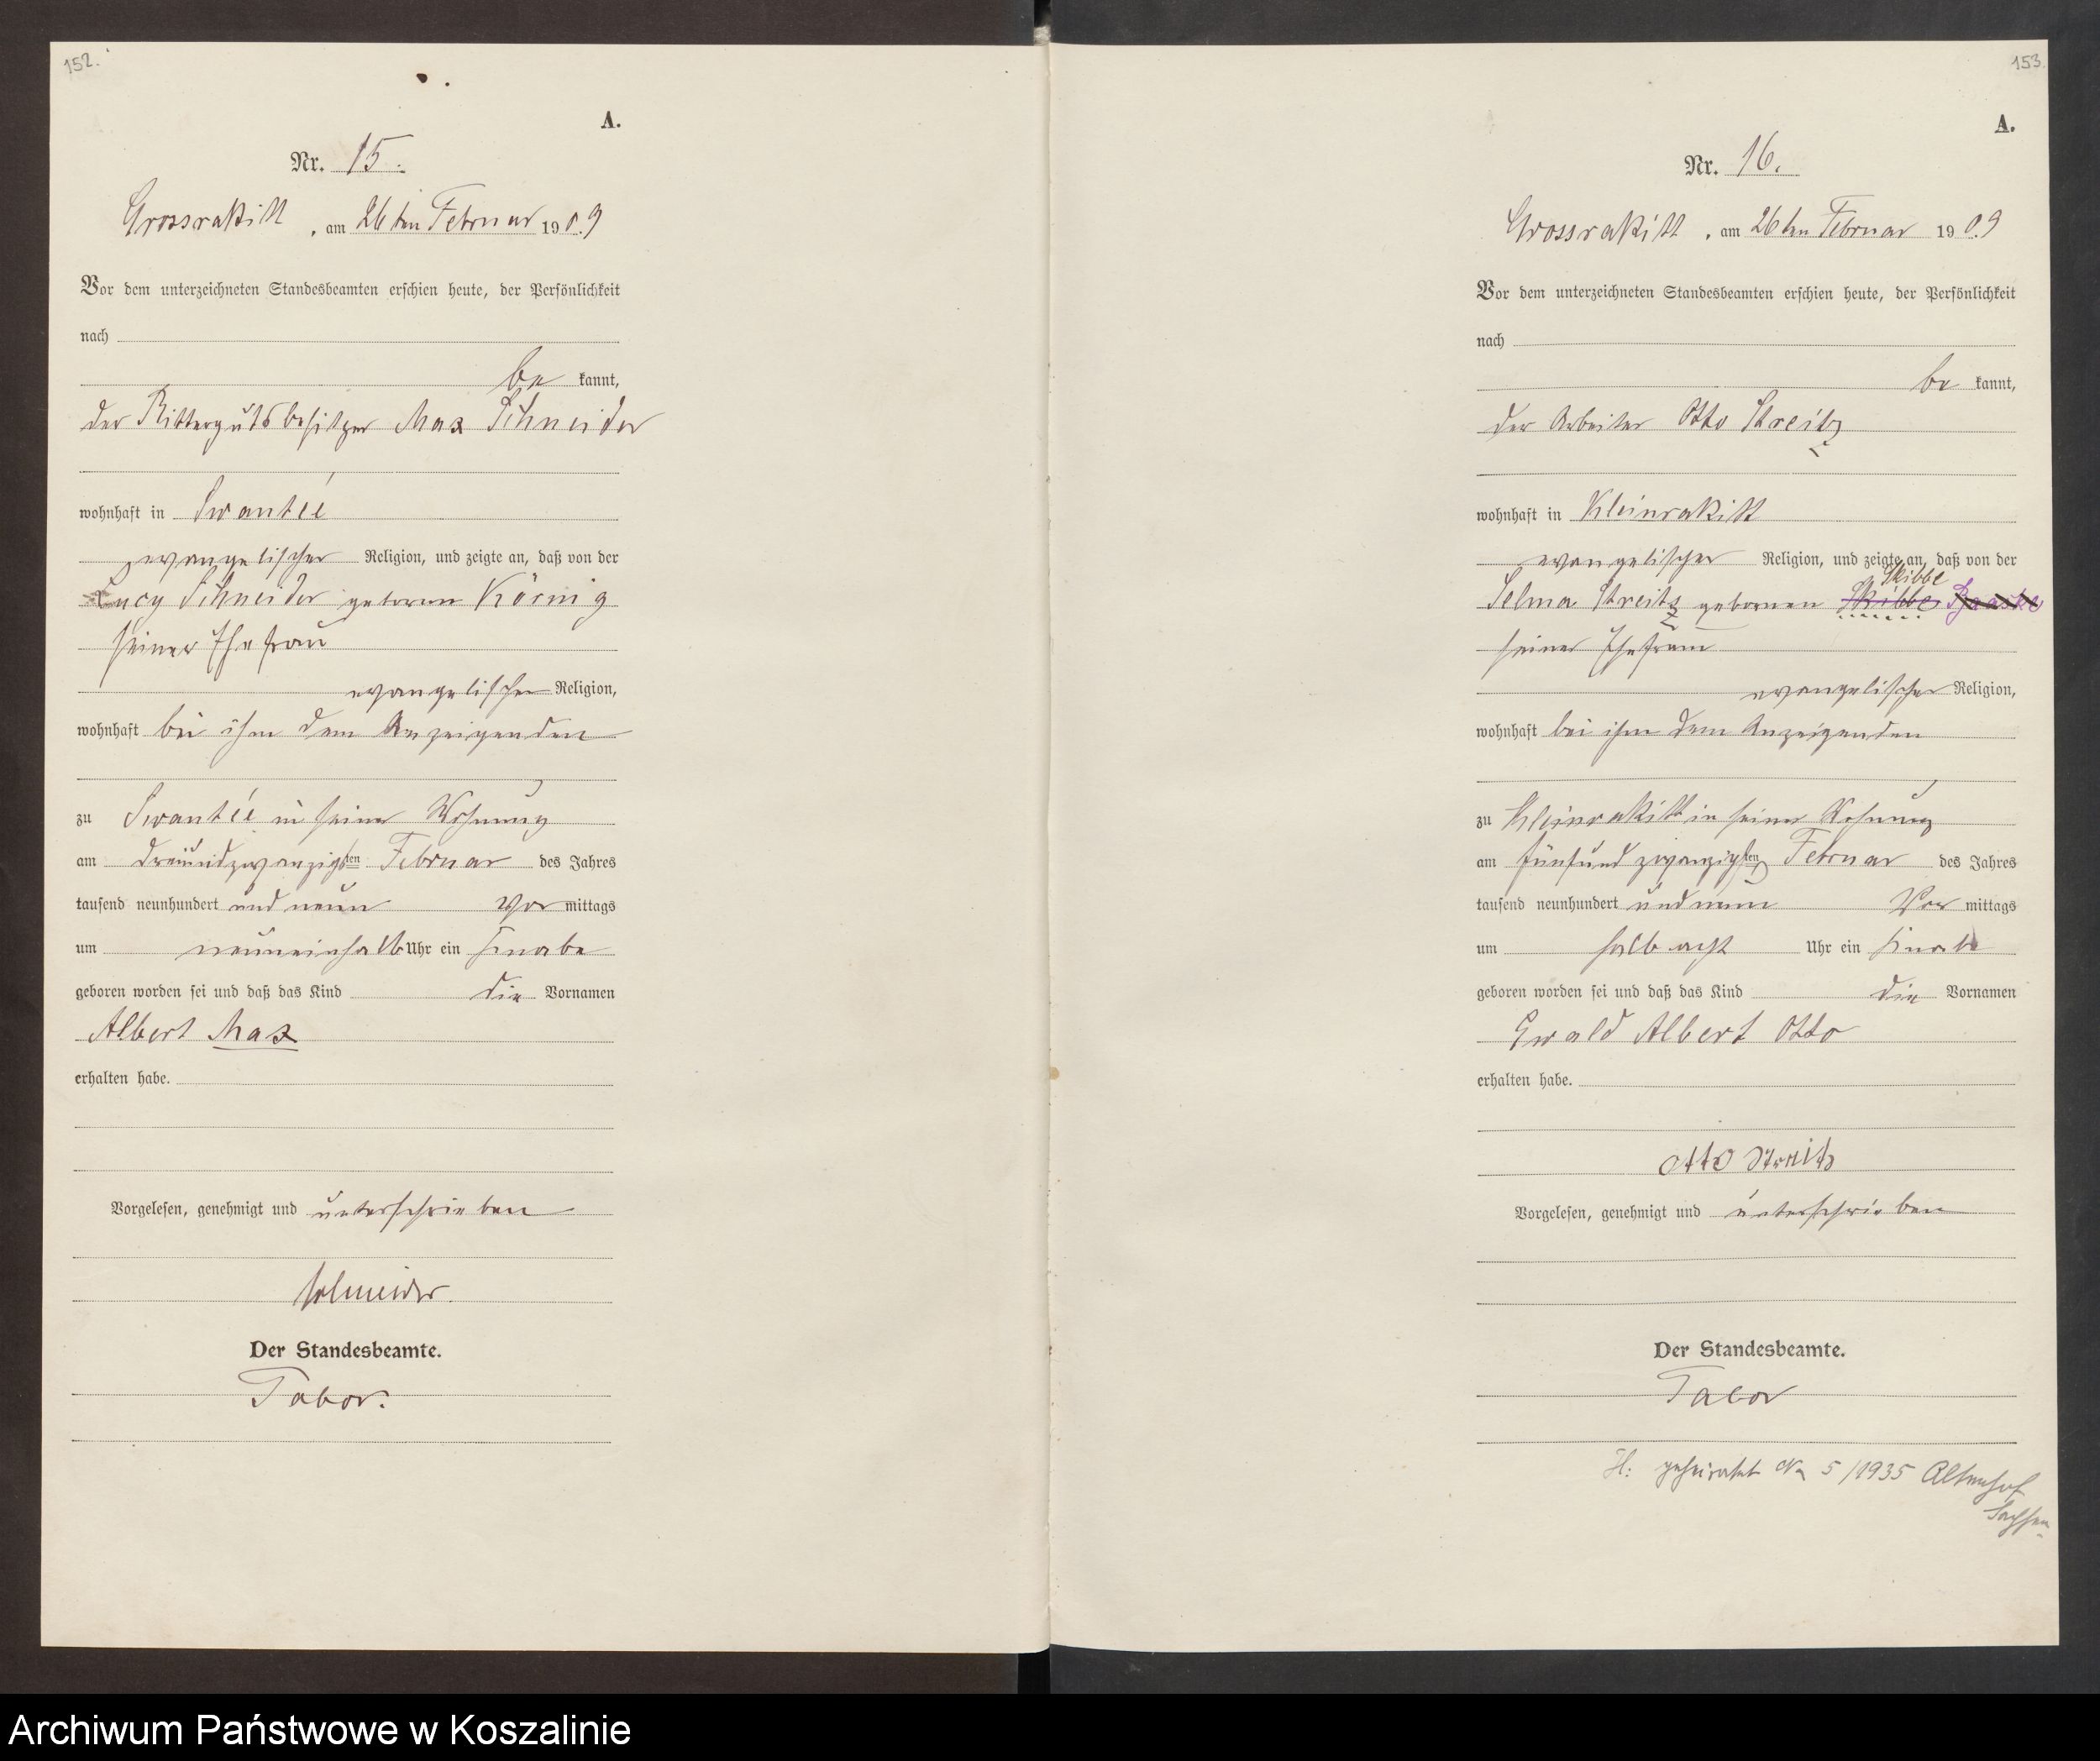 152.
A.
Nr. 15.
Grossrakitt, am 26ten Februar 1909
Vor dem unterzeichneten Standesbeamten erschien heute, der Persönlichkeit
nach
be kannt,
der Rittergutsbesitzer Max Schneider
wohnhaft in Swantée
evangelischer Religion, und zeigte an, daß von der
Lucy Schneider geborenen Körnig
seiner Ehefrau
evangelischer Religion,
wohnhaft bei ihm dem Anzeigenden
zu Swantée in seiner Wohnung
am dreiundzwanzigsten Februar des Jahres
tausend neunhundert und neun Vor mittags
um neuneinhalb Uhr ein Knabe
geboren worden sei und daß das Kind die Vornamen
Albert Max
erhalten habe.
Vorgelesen, genehmigt und unterschrieben
Schneider.
Der Standesbeamte.
Tabor.
153.
A.
Nr. 16.
Grossrakitt, am 26ten Februar 1909
Vor dem unterzeichneten Standesbeamten erschien heute, der Persönlichkeit
nach
be kannt,
der Arbeiter Otto Streitz
wohnhaft in Kleinrakitt
evangelischer Religion, und zeigte an, daß von der
Skibbe
Selma Streitz geborenen Skibbe
seiner Ehefrau
evangelischer Religion,
wohnhaft bei ihm dem Anzeigenden
zu Kleinrakitt in seiner Wohnung
am fünfundzwanzigsten Februar des Jahres
tausend neunhundert und neun Vor mittags
um halb acht Uhr ein Knabe
geboren worden sei und daß das Kind die Vornamen
Ewald Albert Otto
erhalten habe.
Otto Streitz
Vorgelesen, genehmigt und unterschrieben
Der Standesbeamte.
Tabor
H: geheiratet No 5/1935 Altenhof
Sachsen
Archiwum Państwowe w Koszalinie